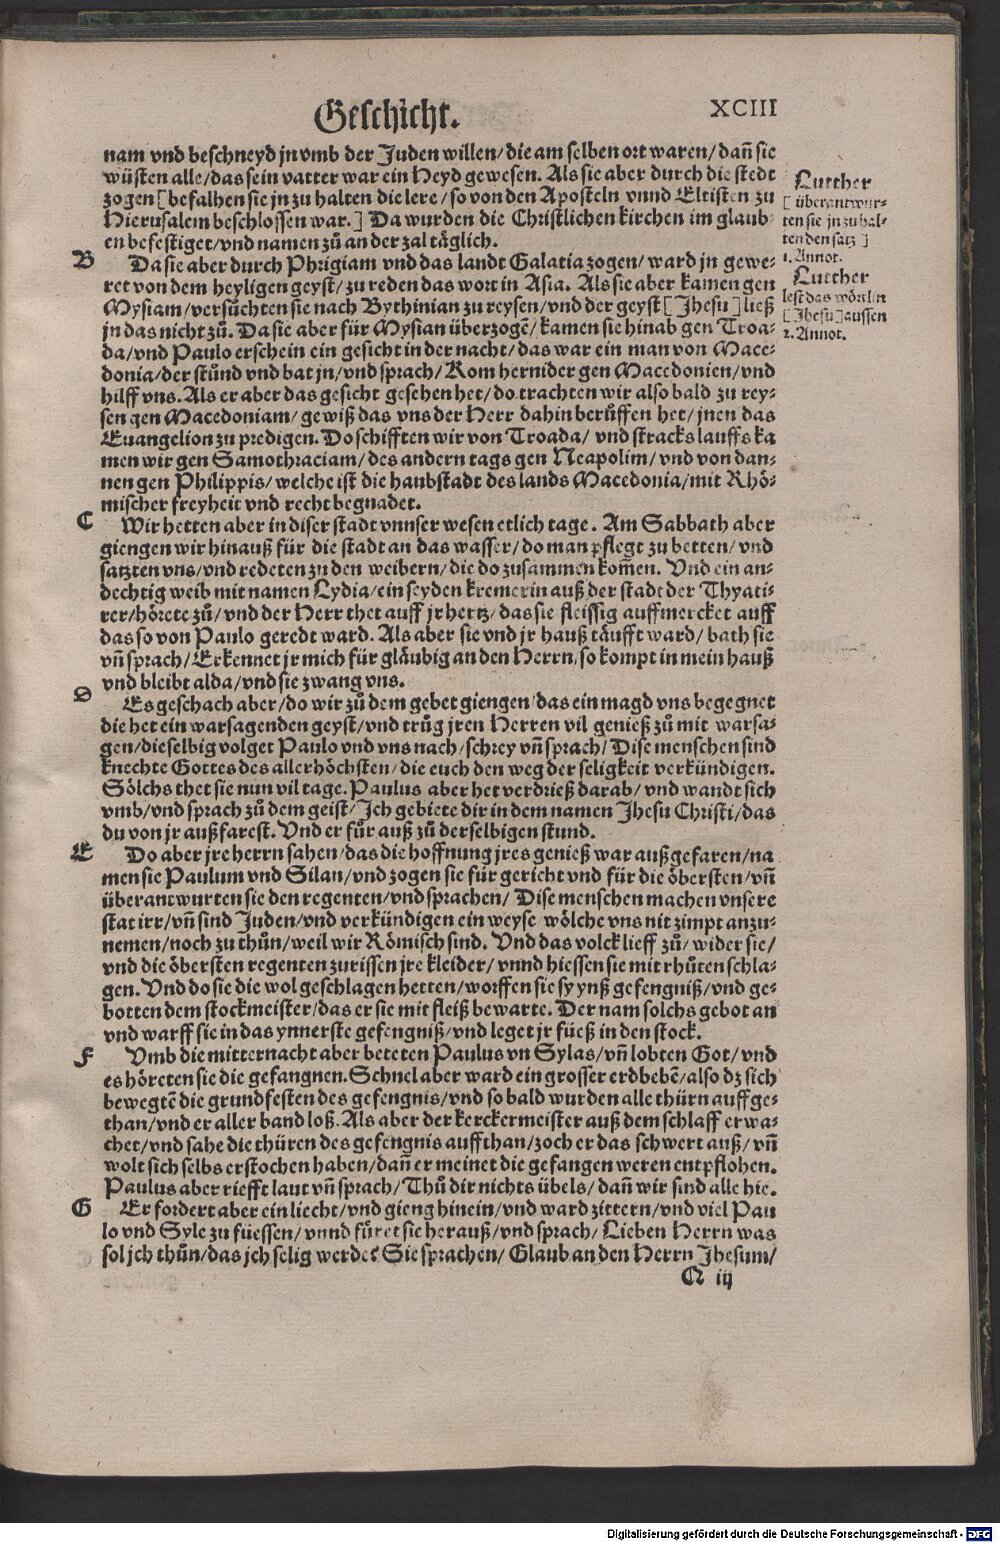 Geschicht.
XCIII
nam vnd beschneyd jn vmb der Juden willen/ die am selben ort waren/ dañ sie
wüsten alle/ das sein vatter war ein Heyd gewesen. Als sie aber durch die stedt
zogen [befalhen sie jn zu halten die lere/ so von den Aposteln vnnd Eltisten zu
Hierusalem beschlossen war.] Da wurden die Christlichen kirchen im glaub
en befestiget/ vnd namen zů an der zal täglich.
Lutther
[ überantwur-
ten sie jn zu hal-
ten den satz ]
1. Annot.
B
Da sie aber durch Phrigiam vnd das landt Galatia zogen/ ward jn gewe-
ret von dem heyligen geyst/ zu reden das wort in Asia. Als sie aber kamen gen
Mysiam/ versůchten sie nach Bythinian zu reysen/ vnd der geyst [Jhesu] ließ
jn das nicht zů. Da sie aber für Mysian überzogē/ kamen sie hinab gen Troa-
da/ vnd Paulo erschein ein gesicht in der nacht/ das war ein man von Mace-
donia/ der stůnd vnd bat jn/ vnd sprach/ Kom hernider gen Macedonien/ vnd
hilff vns. Als er aber das gesicht gesehen het/ do trachten wir also bald zu rey-
sen gen Macedoniam/ gewiß das vns der Herr dahin berůffen het/ jnen das
Euangelion zu predigen. Do schifften wir von Troada/ vnd stracks lauffs ka
men wir gen Samothraciam/ des andern tags gen Neapolim/ vnd von dan-
nen gen Philippis/ welche ist die haubstadt des lands Macedonia/ mit Rhö-
mischer freyheit vnd recht begnadet.
Lutther
lest das wörtlin
[Jhesu] aussen
2. Annot.
C
Wir hetten aber in diser stadt vnnser wesen etlich tage. Am Sabbath aber
giengen wir hinauß für die stadt an das wasser/ do man pflegt zu betten/ vnd
satzten vns/ vnd redeten zu den weibern/ die do zusammen kom̄en. Vnd ein an-
dechtig weib mit namen Lydia/ ein seyden kremerin auß der stadt der Thyati-
rer/ hörete zů/ vnd der Herr thet auff jr hertz/ das sie fleissig auffmercket auff
das so von Paulo geredt ward. Als aber sie vnd jr hauß täufft ward/ bath sie
vñ sprach/ Erkennet jr mich für gläubig an den Herrn/ so kompt in mein hauß
vnd bleibt alda/ vnd sie zwang vns.
D
Es geschach aber/ do wir zů dem gebet giengen/ das ein magd vns begegnet
die het ein warsagenden geyst/ vnd trůg jren Herren vil genieß zů mit warsa-
gen/ dieselbig volget Paulo vnd vns nach/ schrey vñ sprach/ Dise menschen sind
knechte Gottes des allerhöchsten/ die euch den weg der seligkeit verkündigen.
Sölchs thet sie nun vil tage. Paulus aber het verdrieß darab/ vnd wandt sich
vmb/ vnd sprach zů dem geist/ Jch gebiete dir in dem namen Jhesu Christi/ das
du von jr außfarest. Vnd er fůr auß zů derselbigen stund.
E
Do aber jre herrn sahen/ das die hoffnung jres genieß war außgefaren/ na
men sie Paulum vnd Silan/ vnd zogen sie für gericht vnd für die öbersten/ vñ
überantwurten sie den regenten/ vnd sprachen/ Dise menschen machen vnsere
stat irr/ vñ sind Juden/ vnd verkündigen ein weyse wölche vns nit zimpt anzu-
nemen/ noch zu thůn/ weil wir Römisch sind. Vnd das volck lieff zů/ wider sie/
vnd die öbersten regenten zurissen jre kleider/ vnnd hiessen sie mit rhůten schla-
gen. Vnd do sie die wol geschlagen hetten/ worffen sie sy ynß gefengniß/ vnd ge-
botten dem stockmeister/ das er sie mit fleiß bewarte. Der nam solchs gebot an
vnd warff sie in das ynnerste gefengniß/ vnd leget jr füeß in den stock.
F
Vmb die mitternacht aber beteten Paulus vn Sylas/ vñ lobten Got/ vnd
es höreten sie die gefangnen. Schnel aber ward ein grosser erdbebē/ also dz sich
bewegtē die grundfesten des gefengnis/ vnd so bald wurden alle thürn auffge-
than/ vnd er aller band loß. Als aber der kerckermeister auß dem schlaff erwa-
chet/ vnd sahe die thüren des gefengnis auffthan/ zoch er das schwert auß/ vñ
wolt sich selbs erstochen haben/ dañ er meinet die gefangen weren entpflohen.
Paulus aber riefft laut vñ sprach/ Thů dir nichts übels/ dañ wir sind alle hie.
G
Er fordert aber ein liecht/ vnd gieng hinein/ vnd ward zittern/ vnd viel Pau
lo vnd Syle zu füessen/ vnnd fůret sie herauß/ vnd sprach/ Lieben Herrn was
sol jch thůn/ das jch selig werde? Sie sprachen/ Glaub an den Herrn Jhesum/
Q iij
Digitalisierung gefördert durch die Deutsche Forschungsgemeinschaft - DFG